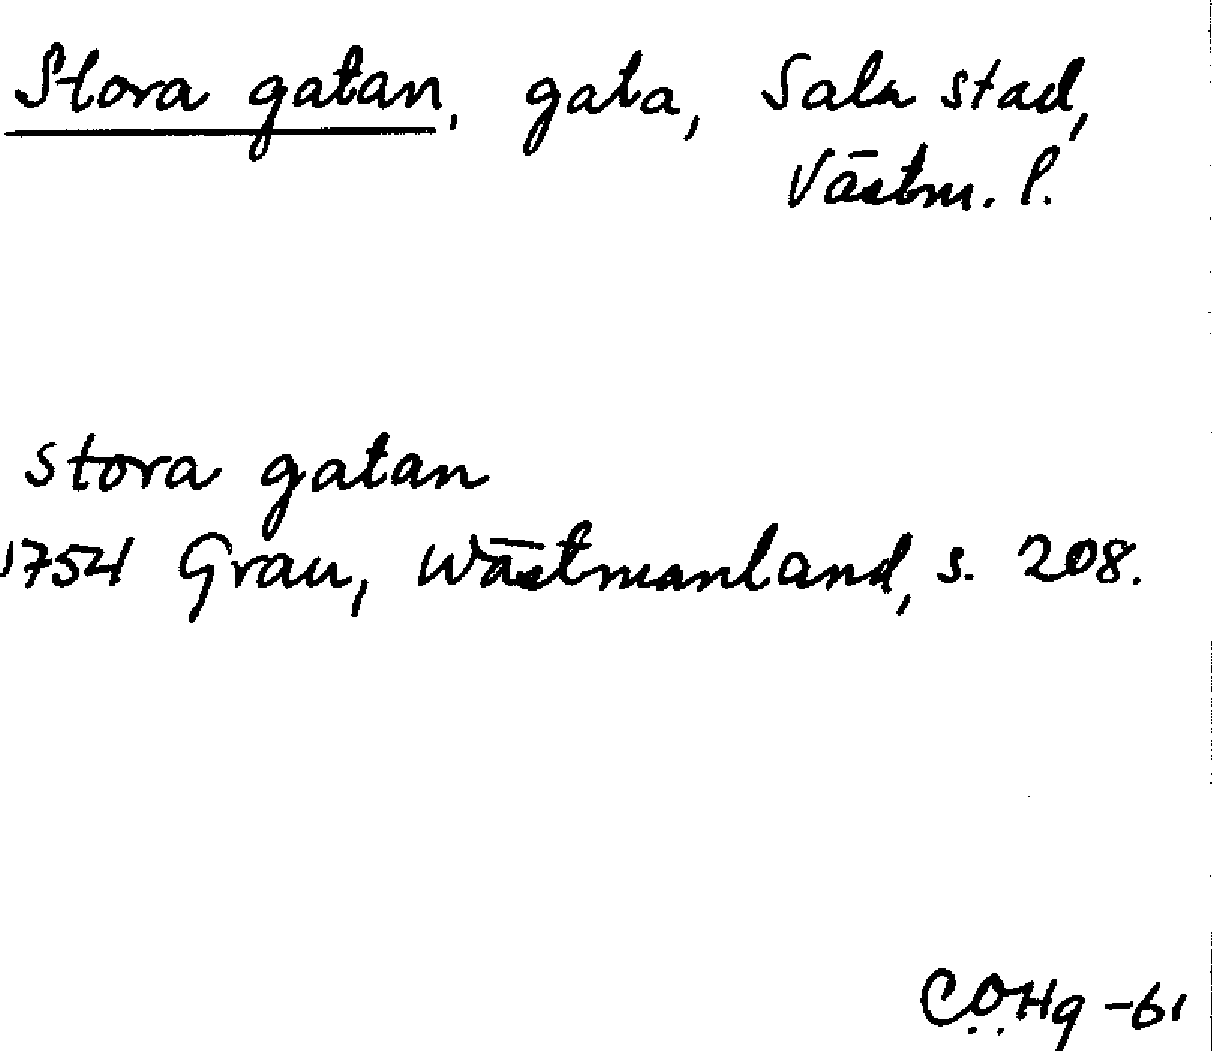 Stora gatan, gata, Sala stad,
Västm. l.
stora gatan
1754 Grau, Wästmanland, s. 208.
C.O.Hg -61